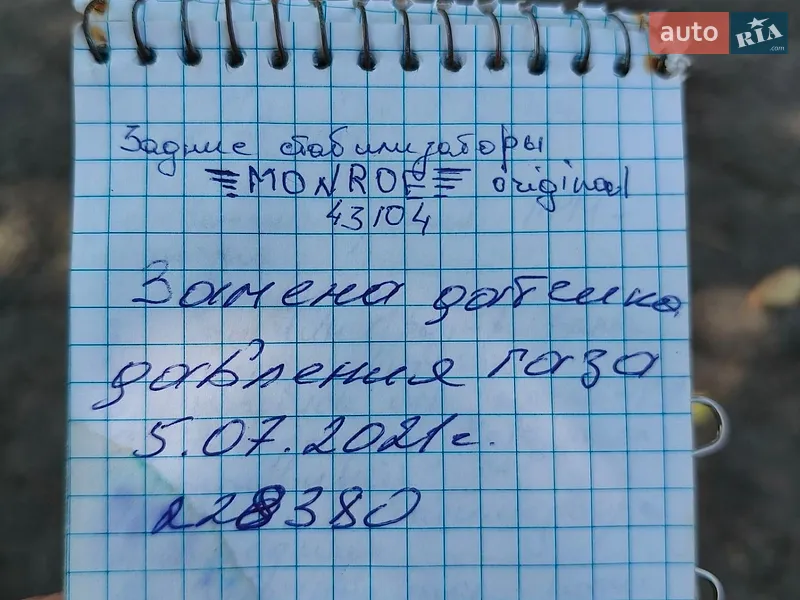 auto RIA .com
Задние стабилизаторы
MONROE original
43104
Замена датчика
давления газа
5.07.2021г.
228380